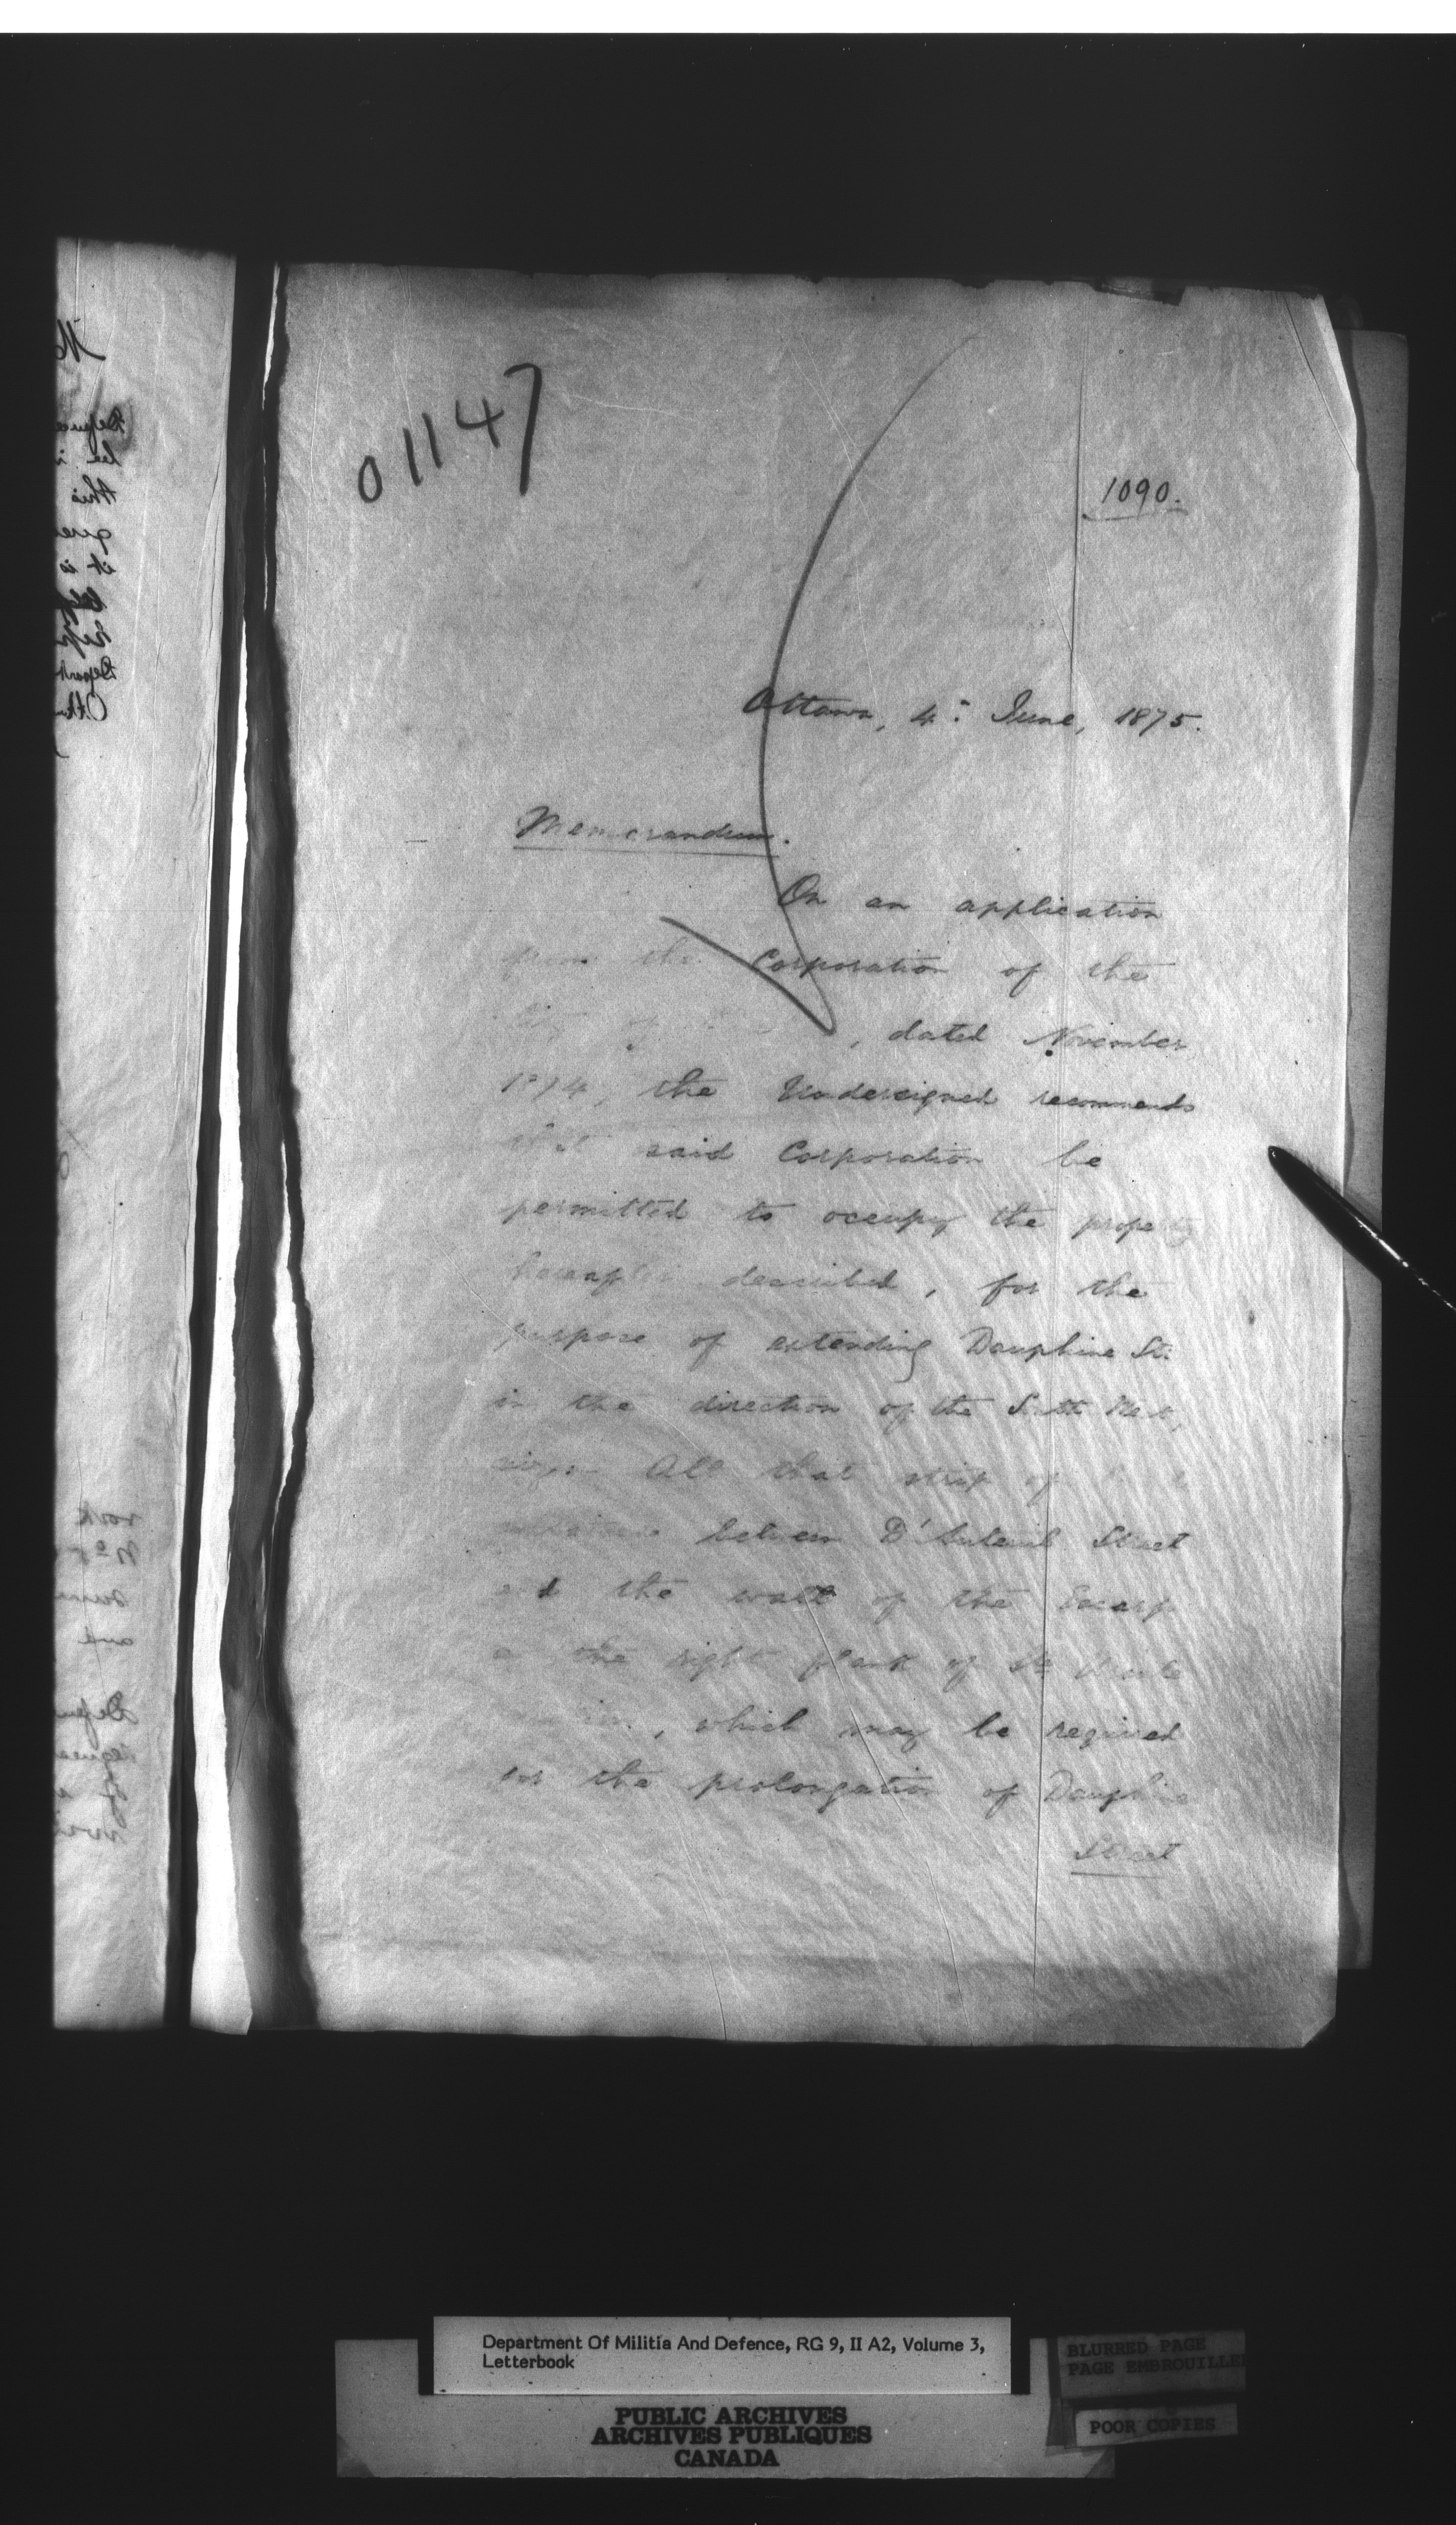 01147
1090.
Ottawa, 4th June, 1875.
Memorandum.
On an application
from the Corporation of the
City of , dated November
1874, the Undersigned recommends
that said Corporation be
permitted to occupy the property
hereafter described, for the
purpose of extending Dauphine St.
in the direction of the South West,
All that strip of
between D'Auteuil Street
and the wall of the Escarp
on the right flank of St. Ursule
, which may be required
for the prolongation of Dauphine
Street
Department Of Militia And Defence, RG 9, II A2, Volume 3,
Letterbook
PUBLIC ARCHIVES
ARCHIVES PUBLIQUES
CANADA
BLURRED PAGE
PAGE EMBROUILLEE
POOR COPIES